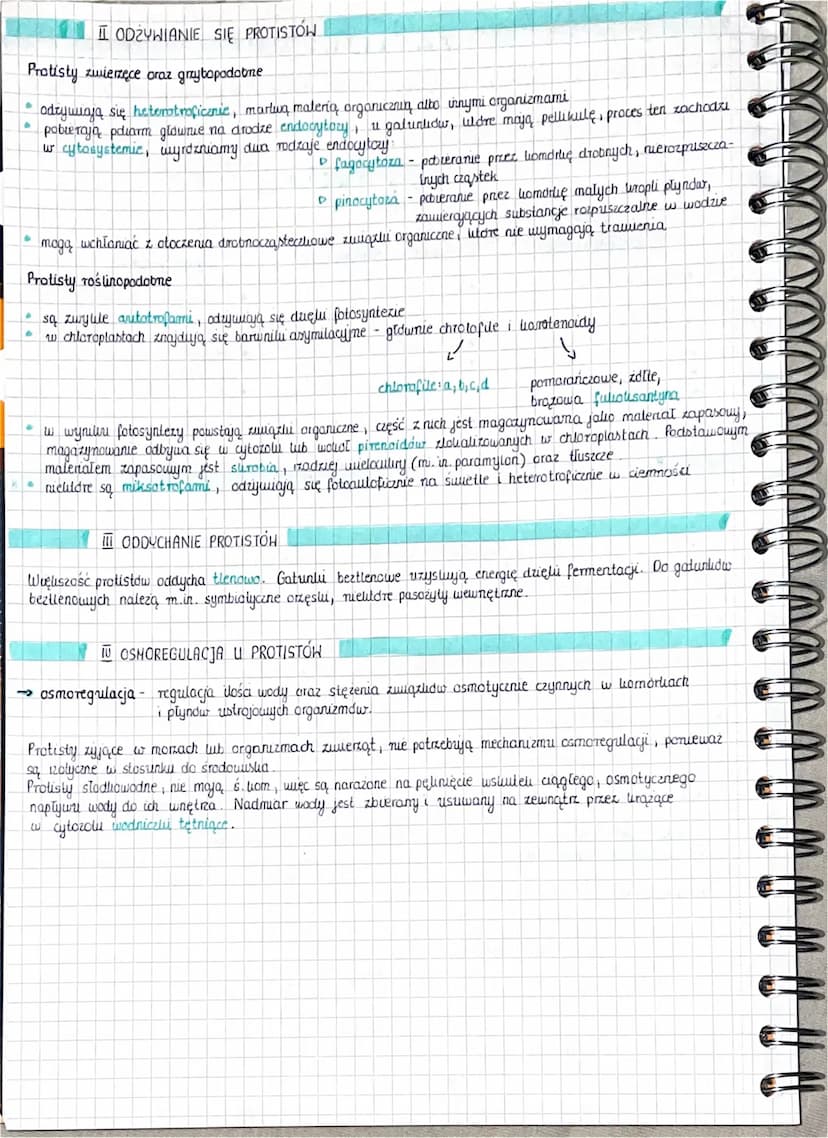 II ODŻYWIANIE SIĘ PROTISTÓW
Protisty zwierzęce oraz grzybopodobne
• odżywiają się heterotroficznie, martwą materią organiczną albo innymi organizmami
• pobierają pokarm głównie na drodze endocytozy, u gatunków, które mają pellikulę, proces ten zachodzi
w cytosystemie, wyróżniamy dwa rodzaje endocytozy:
▷ fagocytoza - pobieranie przez komórkę drobnych, nierozpuszcza-
lnych cząstek
▷ pinocytoza - pobieranie przez komórkę małych kropli płynów,
zawierających substancje rozpuszczalne w wodzie
• mogą wchłaniać z otoczenia drobnocząsteczkowe związki organiczne, które nie wymagają trawienia
Protisty roślinopodobne
• są zwykle autotrofami, odżywiają się dzięki fotosyntezie
• w chloroplastach znajdują się barwniki asymilacyjne - głównie chlorofile i karotenoidy
↙ ↘
chlorofile: a, b, c, d
pomarańczowe, żółte,
brązowa fukoksantyna
• w wyniku fotosyntezy powstają związki organiczne, część z nich jest magazynowana jako materiał zapasowy,
magazynowanie odbywa się w cytozolu lub wokół pirenoidów zlokalizowanych w chloroplastach. Podstawowym
materiałem zapasowym jest skrobia, rzadziej wielocukry (m.in. paramylon) oraz tłuszcze
• niektóre są miksotrofami, odżywiają się fotoautoficznie na świetle i heterotroficznie w ciemności
III ODDYCHANIE PROTISTÓW
Większość protistów oddycha tlenowo. Gatunki beztlenowe uzyskują energię dzięki fermentacji. Do gatunków
beztlenowych należą m.in. symbiotyczne orzęski, niektóre pasożyty wewnętrzne.
IV OSMOREGULACJA U PROTISTÓW
→ osmoregulacja - regulacja ilości wody oraz stężenia związków osmotycznie czynnych w komórkach
i płynów ustrojowych organizmów.
Protisty żyjące w morzach lub organizmach zwierząt, nie potrzebują mechanizmu osmoregulacji, ponieważ
są izotyczne w stosunku do środowiska.
Protisty słodkowodne, nie mają ś.kom, więc są narażone na pęknięcie wskutek ciągłego, osmotycznego
napływu wody do ich wnętrza. Nadmiar wody jest zbierany i usuwany na zewnątrz przez krążące
w cytozolu wodniczki tętniące.